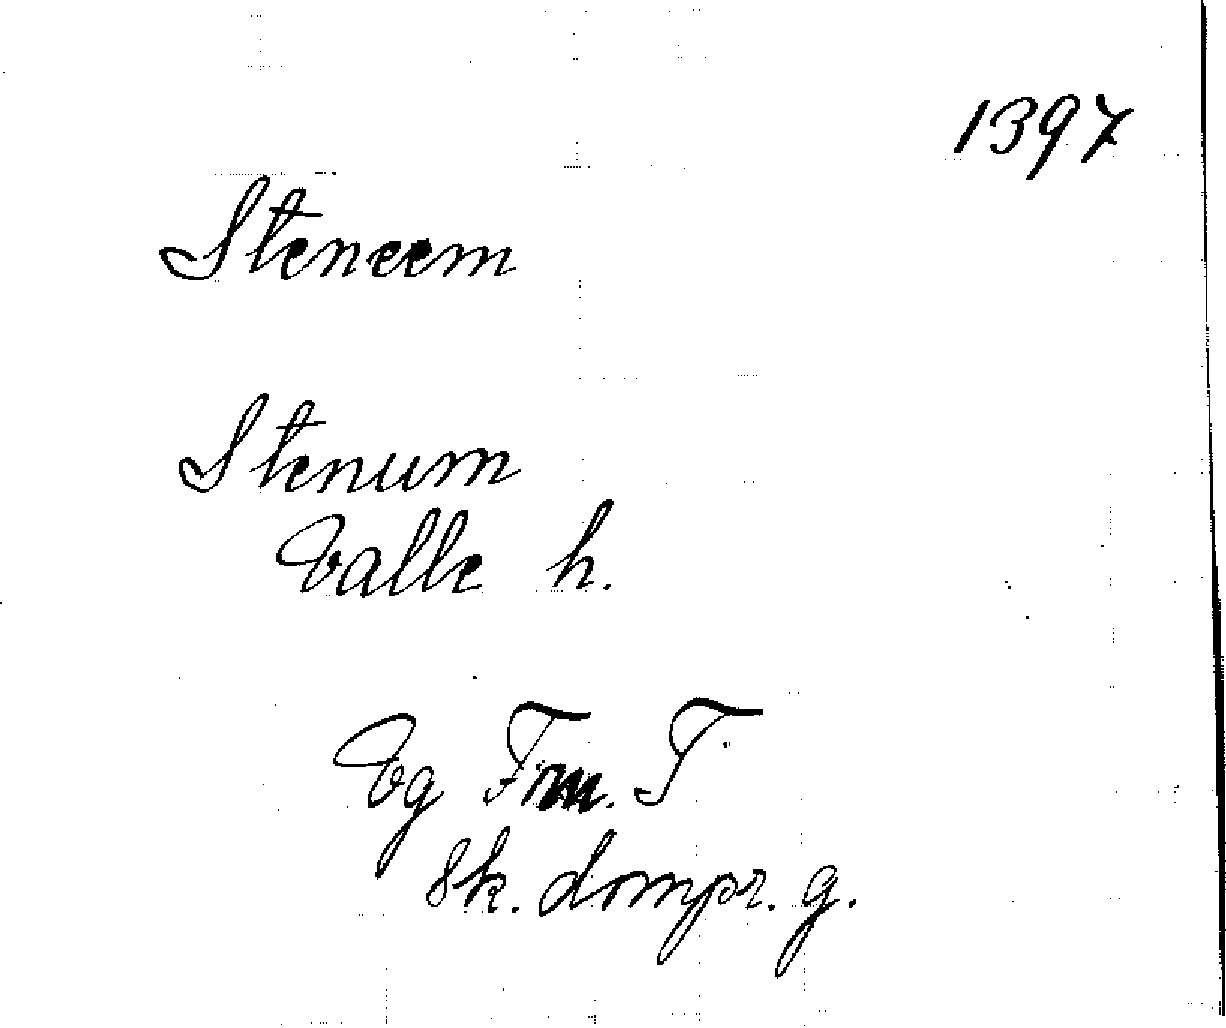 1397
Steneem
Stenum
Valle h.
Vg Frm. I
Sk. dompr. g.